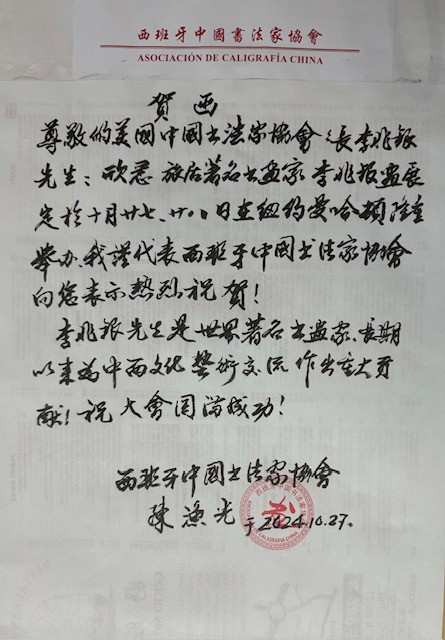 西班牙中國書法家協會
ASOCIACIÓN DE CALIGRAFÍA CHINA
贺函
尊敬的美國中國书法家協會会長李兆银
先生：欣悉旅居著名书画家李兆银画展
定於十月廿七、廿八日在纽约曼哈頓隆重
举办.我谨代表西班牙中國书法家协會
向您表示熱烈祝贺！
李兆银先生是世界著名书画家.長期
以来為中西文化藝術交流作出重大贡
献！祝大會圆满成功！
西班牙中國书法家协會
陳渔光于2024.10.27。
CALIGRAFÍA CHINA